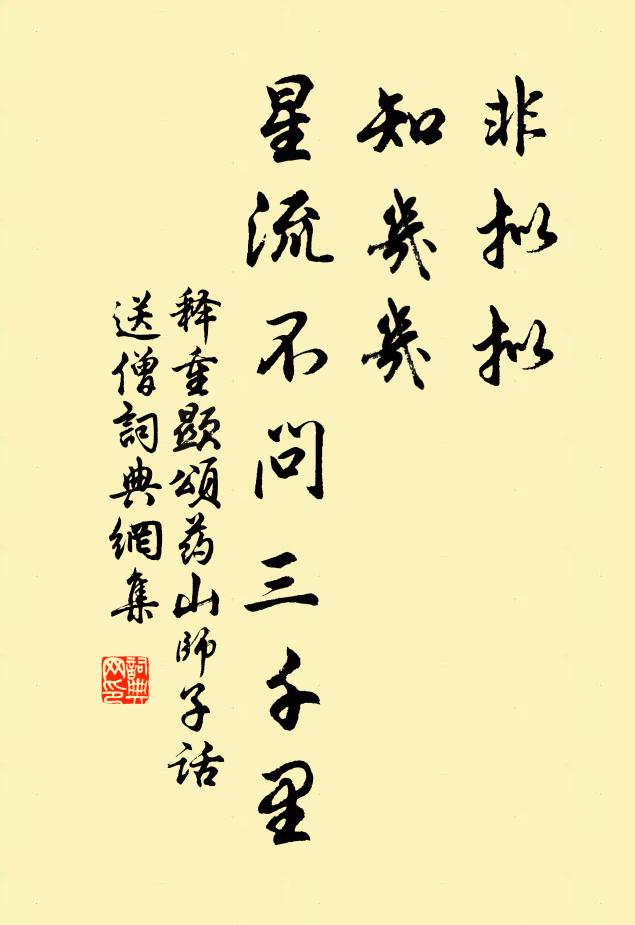 非拟拟
知幾幾
星流不問三千里
释重顯頌药山師子话
送僧詞典網集
詞典网印